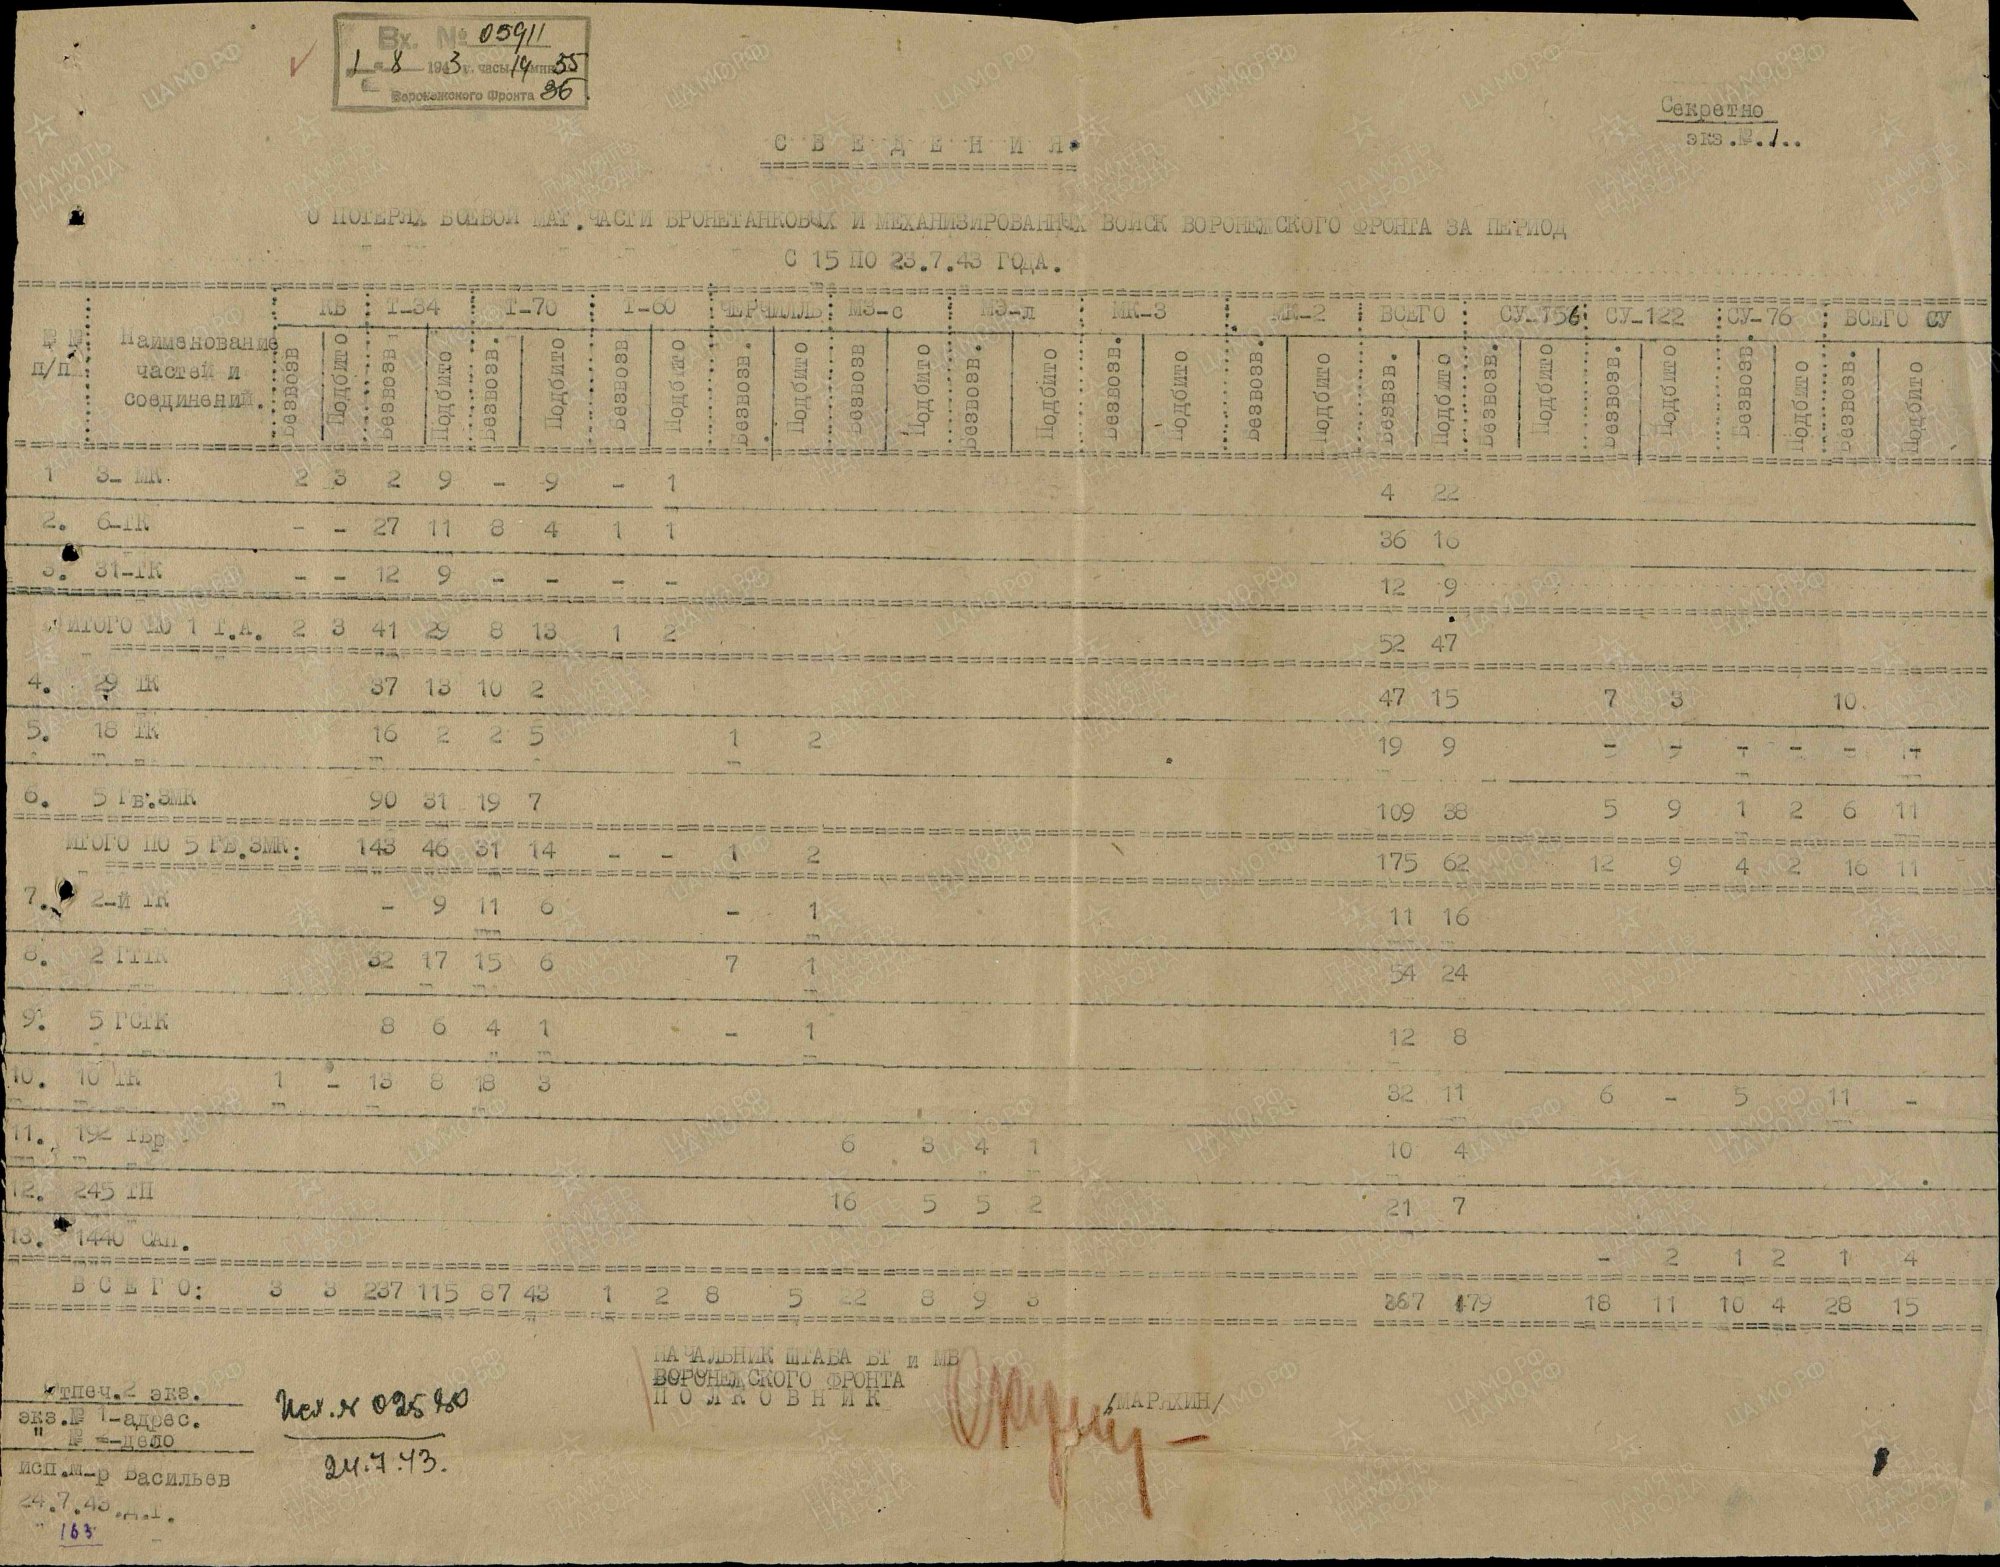 Вх. № 05911
1 - 8 1943 г. часы 14 мин 55
Воронежского Фронта 36
Секретно
экз.№.1..
С В Е Д Е Н И Я
О ПОТЕРЯХ БОЕВОЙ МАТ.ЧАСТИ БРОНЕТАНКОВЫХ И МЕХАНИЗИРОВАННЫХ ВОЙСК ВОРОНЕЖСКОГО ФРОНТА ЗА ПЕРИОД
С 15 ПО 23.7.43 ГОДА.
№ № п/п Наименование частей и соединений. КВ Т-34 Т-70 Т-60 ЧЕРЧИЛЛЬ МЗ-с МЗ-л МК-3 МК-2 ВСЕГО СУ-156 СУ-122 СУ-76 ВСЕГО СУ
Безвозв Подбито Безвозв. Подбито Безвозв. Подбито Безвозв Подбито Безвозв. Подбито Безвозв Подбито Безвозв. Подбито Безвозв. Подбито Безвозв. Подбито Безвзв. Подбито Безвозв. Подбито Безвозв. Подбито Безвозв. Подбито Безвозв. Подбито
1 3- МК. 2 3 2 9 - 9 - 1 4 22
2. 6-ТК - - 27 11 8 4 1 1 36 16
3. 31-ТК - - 12 9 - - - - 12 9
ИТОГО ПО 1 Т.А. 2 3 41 29 8 13 1 2 52 47
4. 29 ТК 37 13 10 2 47 15 7 3 10
5. 18 ТК 16 2 2 5 1 2 19 9 - - - - - -
6. 5 Гв.ЗМК 90 31 19 7 109 38 5 9 1 2 6 11
ИТОГО ПО 5 ГВ.ЗМК: 143 46 31 14 - - 1 2 175 62 12 9 4 2 16 11
7. 2-й ТК - 9 11 6 - 1 11 16
8. 2 ГТТК 32 17 15 6 7 1 54 24
9. 5 ГСТК 8 6 4 1 - 1 12 8
10. 10 ТК 1 - 13 8 18 3 32 11 6 - 5 11 -
11. 192 ТБр 6 3 4 1 10 4
12. 245 ТП 16 5 5 2 21 7
13. 1440 САП. - 2 1 2 1 4
В С Е Г О: 3 3 237 115 87 43 1 2 8 5 22 8 9 3 367 179 18 11 10 4 28 15
НАЧАЛЬНИК ШТАБА БТ и МВ
ВОРОНЕЖСКОГО ФРОНТА
П О Л К О В Н И К /МАРЯХИН/
Отпеч.2 экз.
экз.№ 1-адрес.
" № -дело
исп.м-р Васильев
24.7.43.д.г.
163
Исх.№ 02580
24.7.43.
ПАМЯТЬ НАРОДА
ЦАМО.РФ